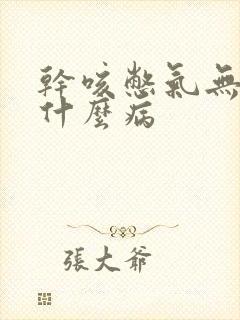 幹咳憋氣無
什麼病
張大爺